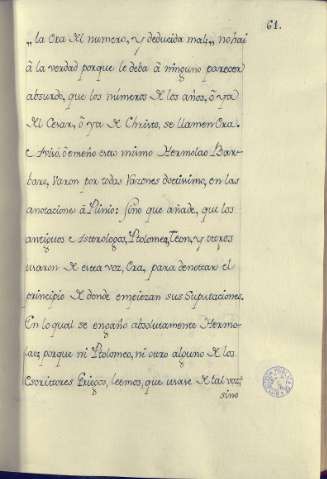 61.
„la Era del numero, y deducida mal:„ no hai
à la verdad porque le deba à ninguno parecer
absurdo, que los numeros de los años, ò ya
del Cesar, ò ya de Christo, se llamen Era.
Avisò, ò enseño esto mismo Hermolao Bar-
baro, Varon por todas razones doctissimo, en las
anotaciones à Plinio: sino que añade, que los
antiguos Astrologos, Ptolomeo, Teon, y otros
usaron de esta voz, Era, para denotar el
principio de donde empiezan sus Suputaciones.
En lo qual se engaño absolutamente Hermo-
lao; porque ni Ptolomeo, ni otro alguno de los
Escritores Griegos, leemos, que usase de tal voz;
sino